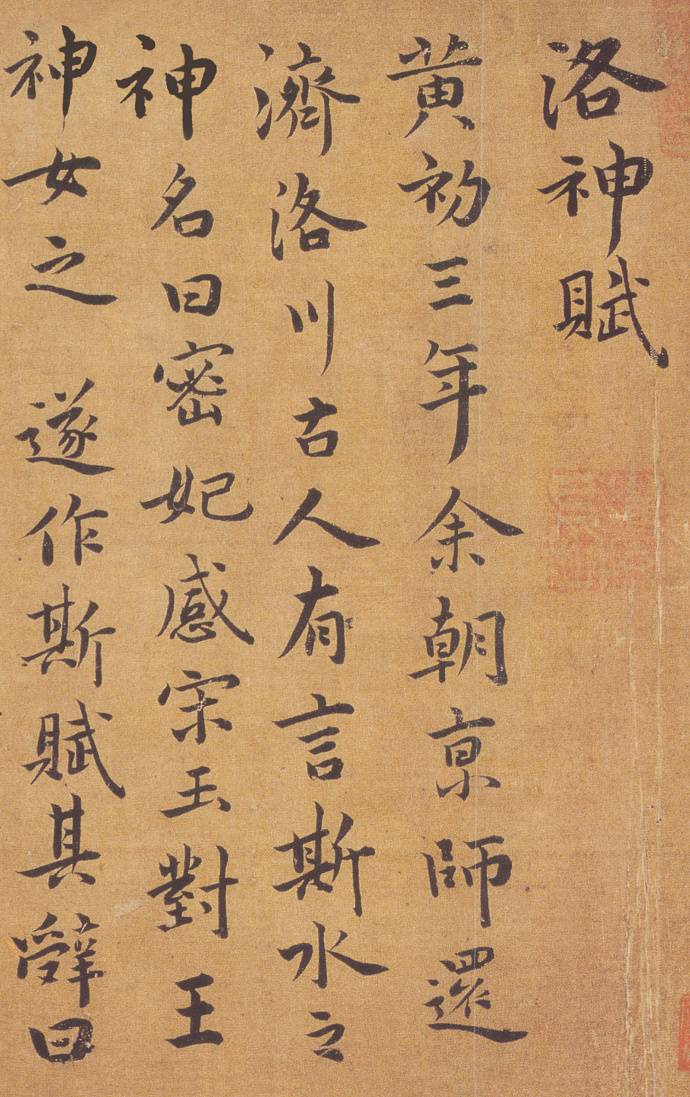 洛神賦
黃初三年余朝京師還
濟洛川古人有言斯水之
神名曰密妃感宋玉對王
神女之 遂作斯賦其辭曰